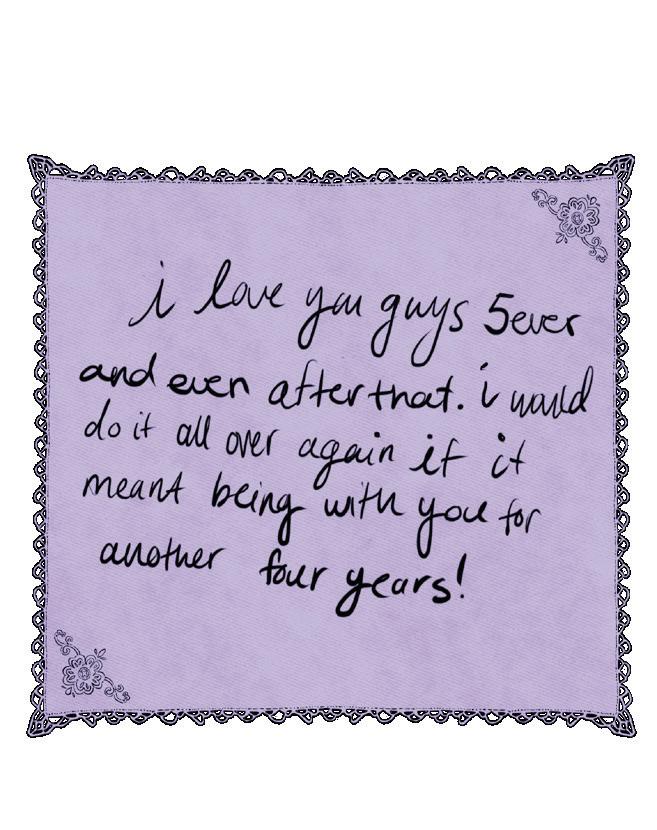 i love you guys 5ever
and even after that. i would
do it all over again if it
meant being with you for
another four years!